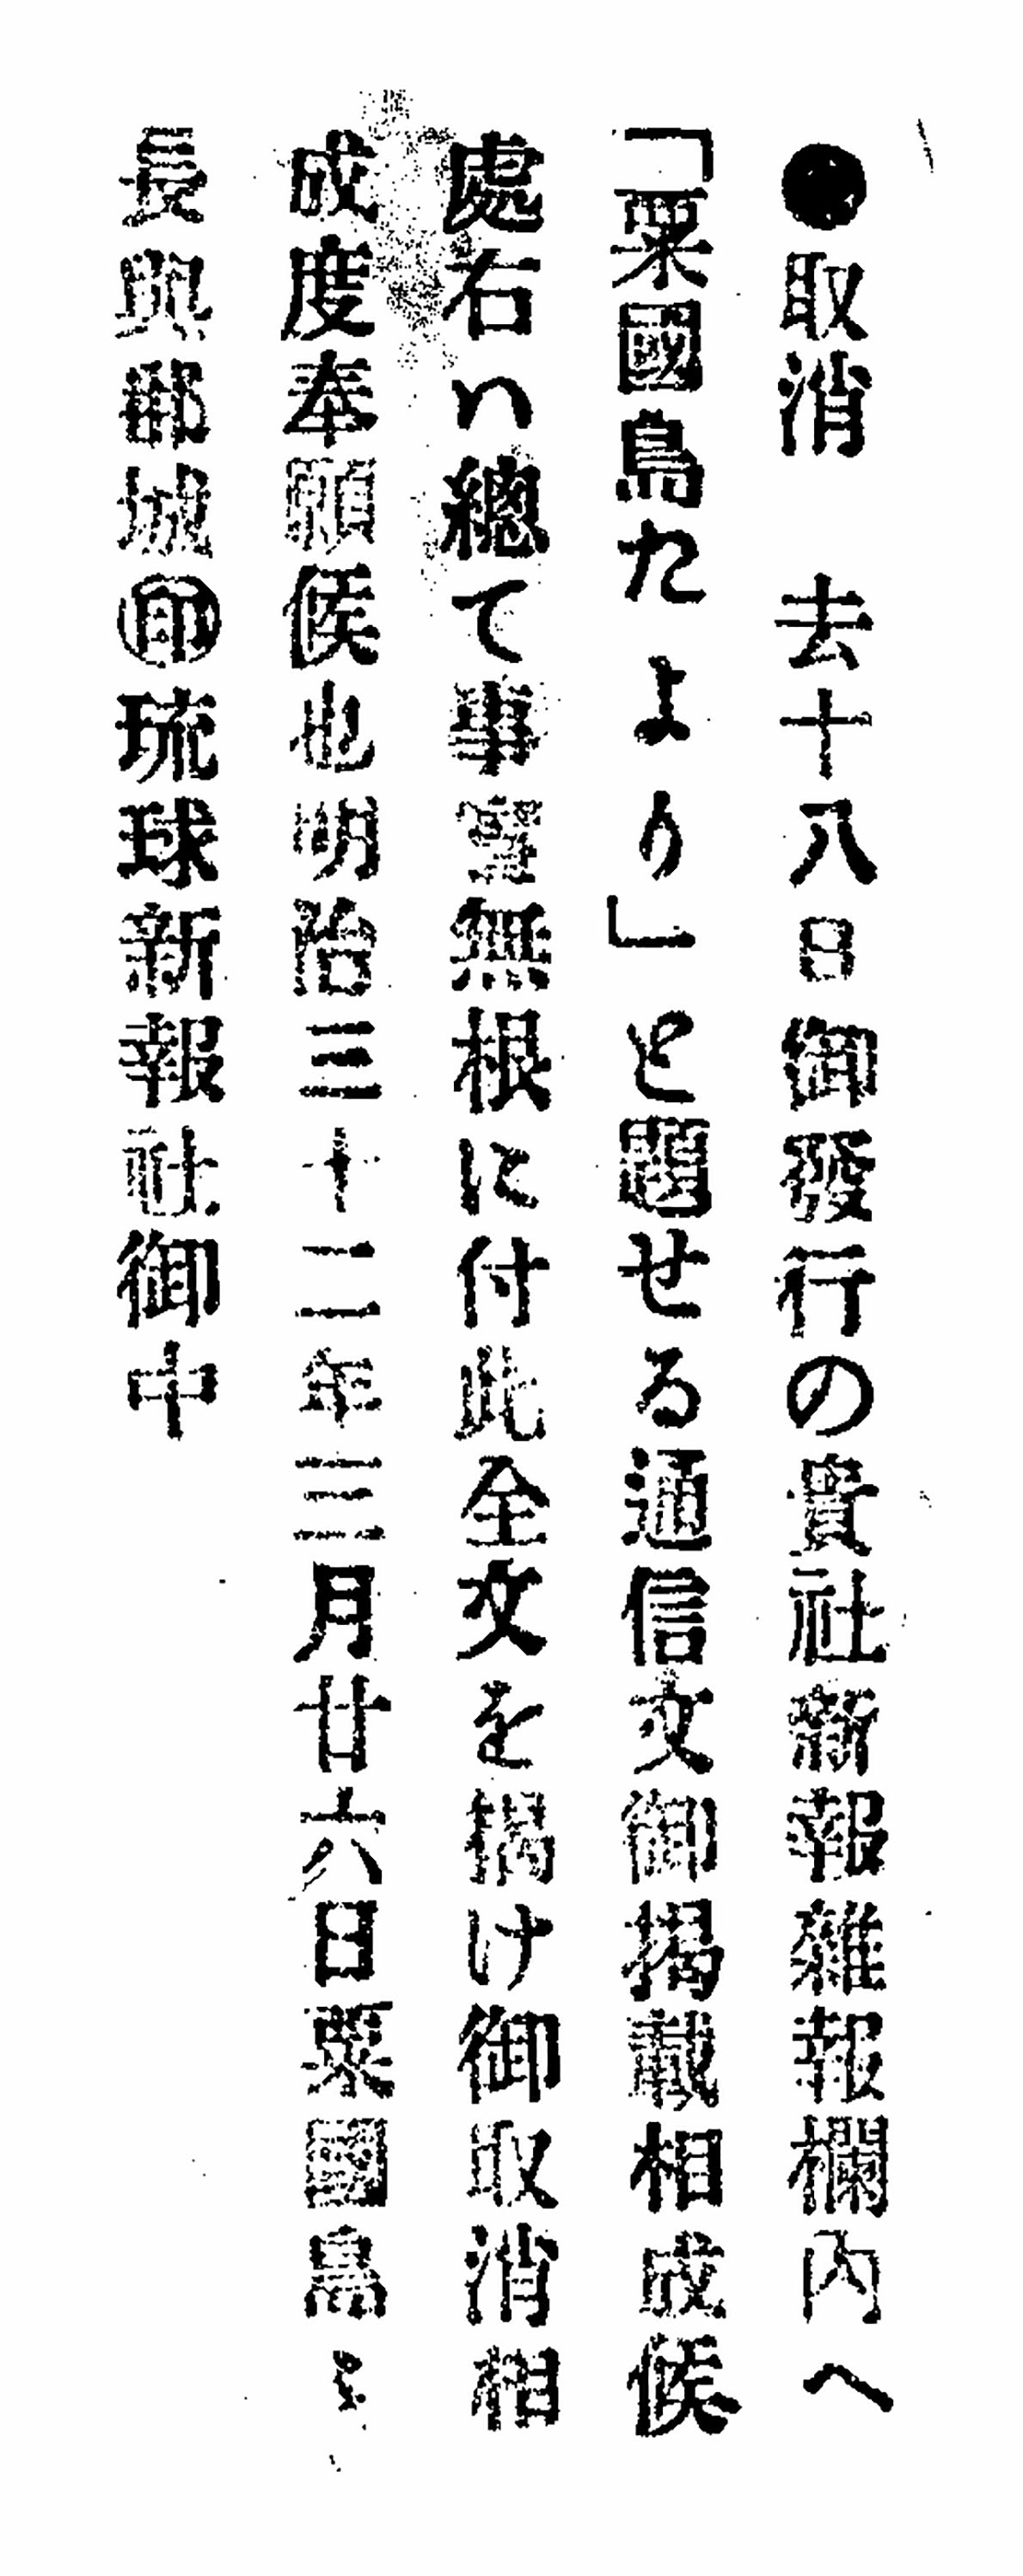 ●取消　去十八日御發行の貴社新報雜報欄内へ
「粟國島たより」と題せる通信文御掲載相成候
處右ハ總て事實無根に付此全文を掲け御取消相
成度奉願候也明治三十二年三月廿六日粟國島〻
長與那城㊞琉球新報社御中